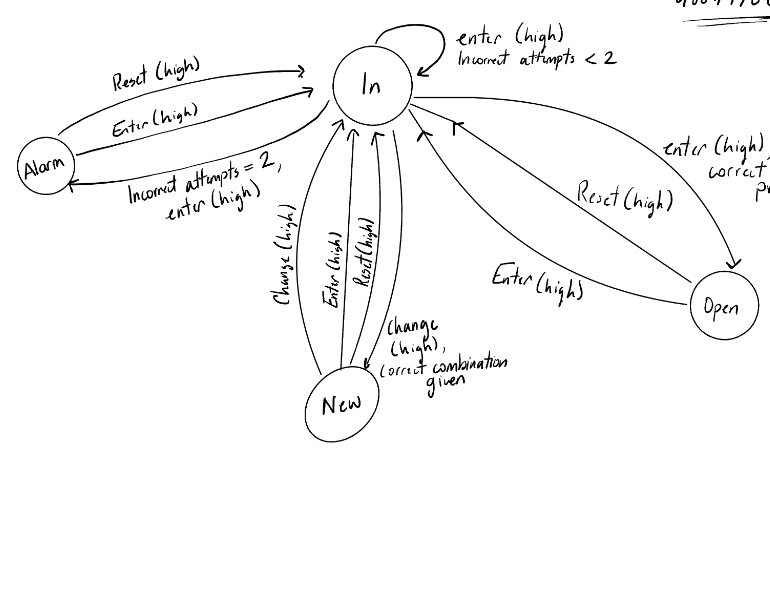 enter (high)
Incorrect attempts < 2
In
Reset (high)
Enter (high)
Alarm
Incorrect attempts = 2,
enter (high)
enter (high)
correct
Reset (high)
Enter (high)
Open
Change (high)
Enter (high)
Reset (high)
Change
(high),
correct combination
given
New